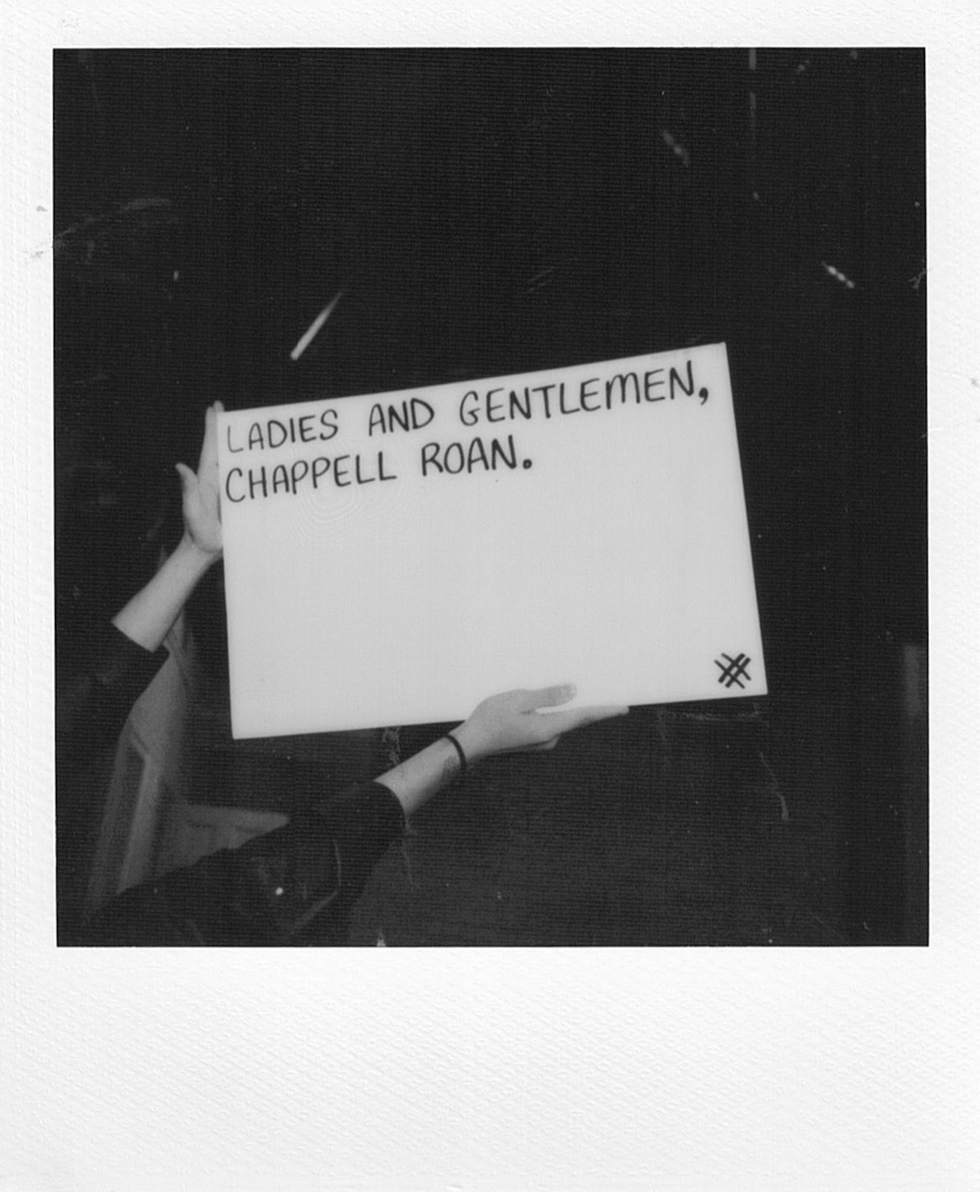 LADIES AND GENTLEMEN,
CHAPPELL ROAN.